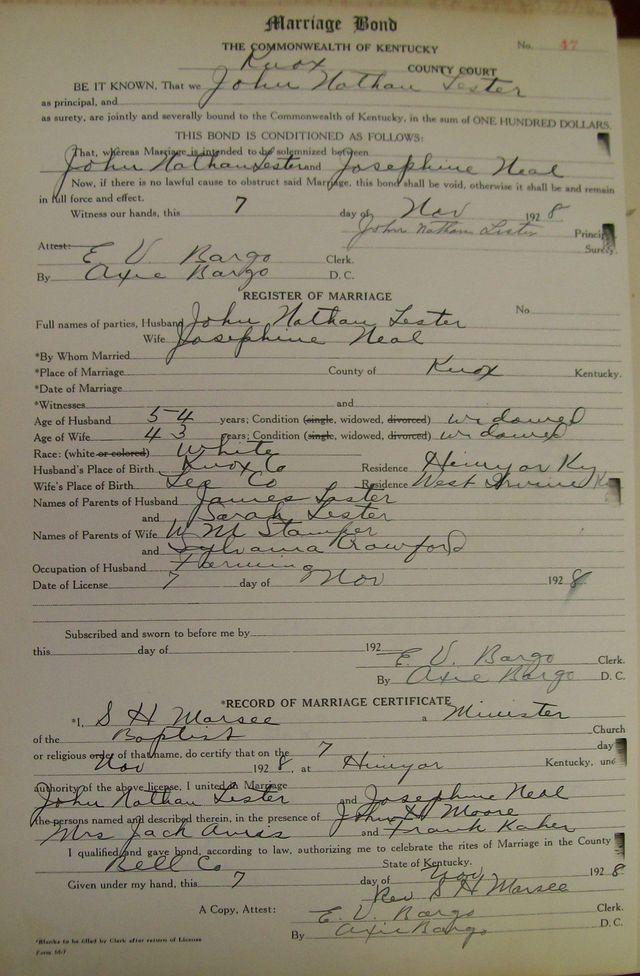 Marriage Bond
THE COMMONWEALTH OF KENTUCKY No. 47
Knox COUNTY COURT
BE IT KNOWN, That we John Nathan Lester
as principal, and
as surety, are jointly and severally bound to the Commonwealth of Kentucky, in the sum of ONE HUNDRED DOLLARS.
THIS BOND IS CONDITIONED AS FOLLOWS:
That, whereas Marriage is intended to be solemnized between
John Nathan Lester and Josephine Neal
Now, if there is no lawful cause to obstruct said Marriage, this bond shall be void, otherwise it shall be and remain
in full force and effect.
Witness our hands, this 7 day of Nov 1928
John Nathan Lester Principal
Surety.
Attest: E V Bargo Clerk.
By Axie Bargo D. C.
REGISTER OF MARRIAGE
No.
Full names of parties, Husband John Nathan Lester
Wife Josephine Neal
*By Whom Married
*Place of Marriage County of Knox Kentucky.
*Date of Marriage
*Witnesses and
Age of Husband 54 years; Condition (single, widowed, divorced) widowed
Age of Wife 43 years; Condition (single, widowed, divorced) widowed
Race: (white or colored) White
Husband's Place of Birth Knox Co Residence Heinyor Ky
Wife's Place of Birth Lee Co Residence West Irvine Ky
Names of Parents of Husband James Lester
and Sarah Lester
Names of Parents of Wife W M Stamper
and Sylvania Crawford
Occupation of Husband Farming
Date of License 7 day of Nov 1928
Subscribed and sworn to before me by
this day of 192
E. V. Bargo Clerk.
By Axie Bargo D. C.
*RECORD OF MARRIAGE CERTIFICATE
*I, S H Marsee a Minister
of the Baptist Church
or religious order of that name, do certify that on the 7 day
Nov 1928, at Hinyor Kentucky, under
authority of the above license, I united in Marriage
John Nathan Lester and Josephine Neal
the persons named and described therein, in the presence of John H Moore
Mrs Jack and Frank
I qualified and gave bond, according to law, authorizing me to celebrate the rites of Marriage in the County
Bell Co State of Kentucky.
Given under my hand, this 7 day of Nov 1928
Rev S H Marsee
A Copy, Attest: E. V. Bargo Clerk.
By Axie Bargo D. C.
*Blanks to be filled by Clerk after return of License